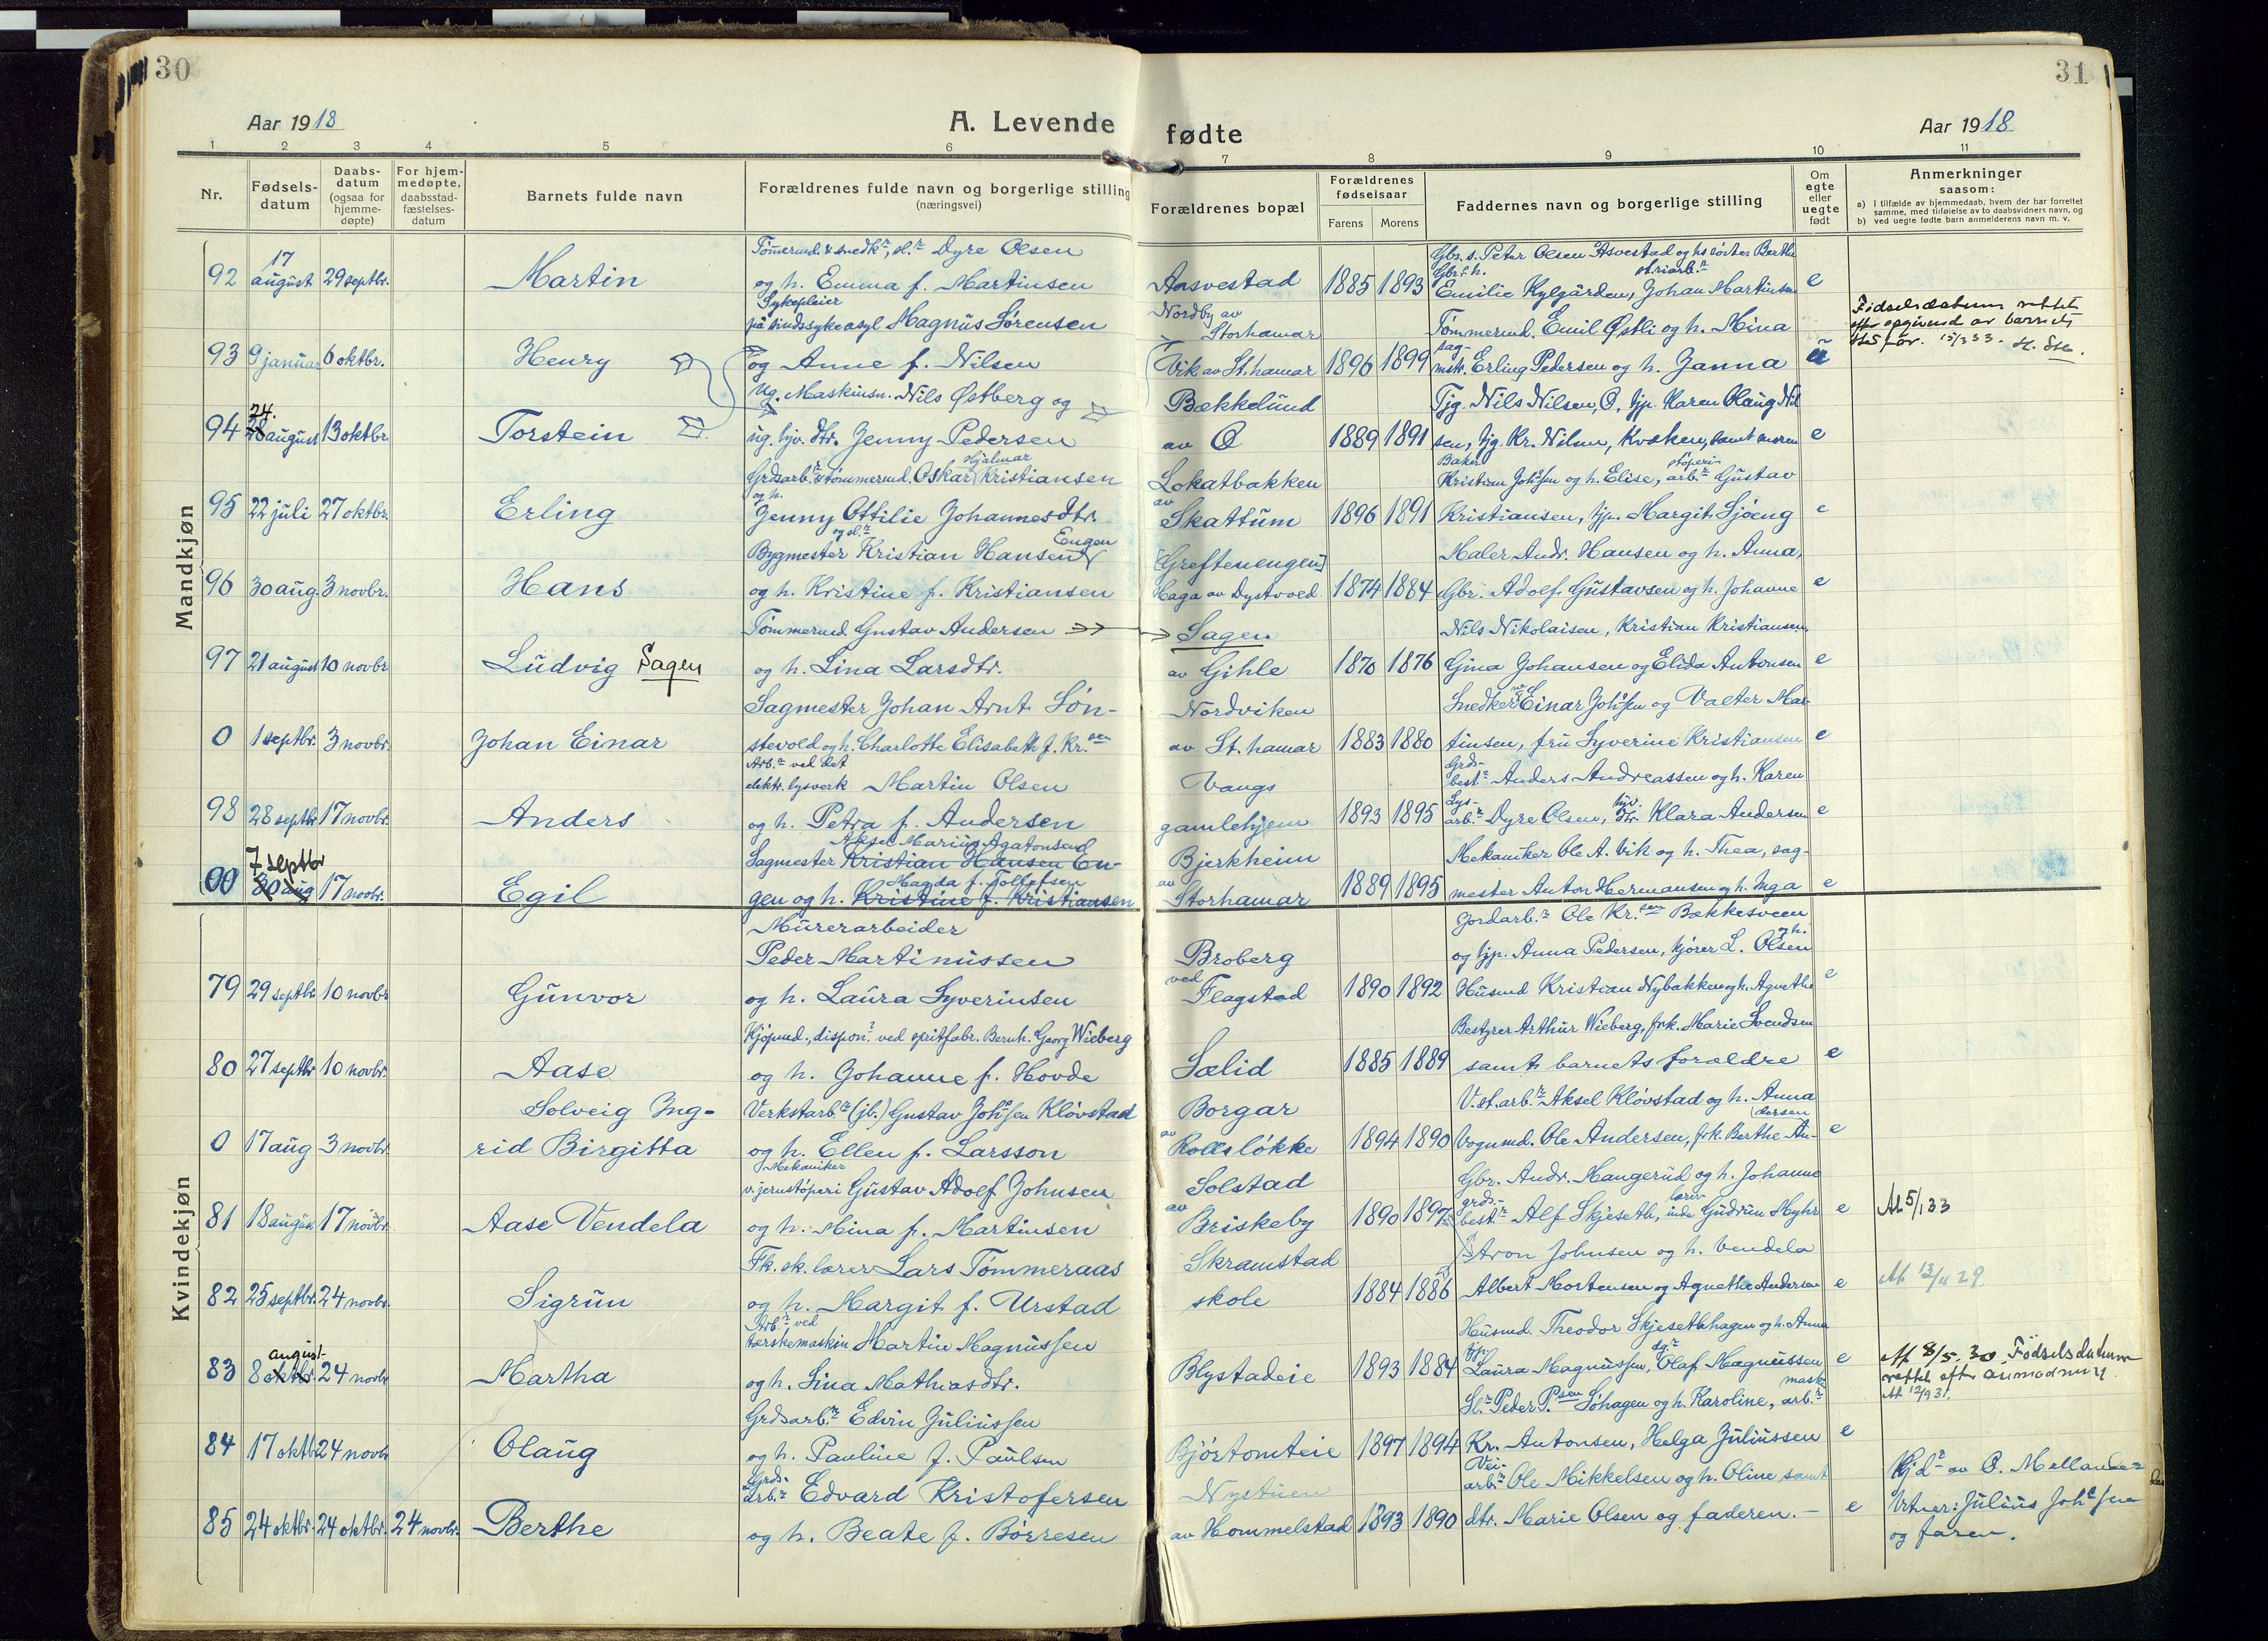 30
31
Aar 1918
A. Levende fødte
Aar 1918
1 2 3 4 5 6 7 8 9 10 11
Nr.
Fødsels-datum
Daabs-datum (ogsaa for hjemme-døpte)
For hjem-medøpte, daabsstad-fæstelses-datum
Barnets fulde navn
Forældrenes fulde navn og borgerlige stilling (næringsvei)
Forældrenes bopæl
Forældrenes fødselsaar
Farens Morens
Faddernes navn og borgerlige stilling
Om egte eller uegte født
Anmerkninger
saasom:
a) i tilfælde av hjemmedaab, hvem der har forrettet samme, med tilføielse av to daabsvidners navn, og
b) ved uegte fødte barn anmelderens navn m. v.
Mandkjøn
Tømmermd. & snedkr, sl.r Dyre Olsen
Gbr. s. Peter Olsen Aasvestad og hs søster Berthe
92 17 august 29 septbr. Martin og h. Emma f. Martinsen Aasvestad 1885 1893 Emilie Kylgården, Johan Martinsen e
Sykepleier
på sindssykeasyl Magnus Sørensen Nordby av Storhamar Tømmermd. Emil Østli og h. Mina
Fødselsdatum rettet
93 9 januar 6 oktbr. Henry og Anne f. Nilsen Vik av St.hamar 1896 1899 mstr. Erling Pedersen og h. Janna
Ug. Maskinsn. Nils Østberg og Bækkelund Tjg. Nils Nilsen, O, tjp. Karen Olaug Nil
94 24. 28 august 13 oktbr. Torstein sig. hjv. dtr. Jenny Pedersen av O 1889 1891 sen, tjg. Kr. Nilsen, Kvæken, samt moren e
Grdsarb.r & tømmermd. Oskar Hjalmar Kristiansen Lokatbakken Baker Kristian Joh.sen og h. Elise, støperi-arb.r Gustav
95 22 juli 27 oktbr. Erling og h. Jenny Ottilie Johannesdtr. av Skattum 1896 1891 Kristiansen, tjp. Margit Sjøeng e
Bygmester og sl.r Kristian Hansen Engen [Greftenengen] Maler Andr. Hansen og h. Anna,
96 30 aug. 3 novbr. Hans og h. Kristine f. Kristiansen Haga av Dystvold 1874 1884 Gbr. Adolf Gustavsen og h. Johanne e
Tømmermd. Gustav Andersen Sagen Nils Nikolaisen, Kristian Kristiansen,
97 21 august 10 novbr Ludvig Sagen og h. Lina Larsdtr. av Gihle 1870 1876 Gina Johansen og Elida Antonsen e
Sagmester Johan Arnt Søn- Nordviken Snedker Einar Joh.sen og Valter Mar-
0 1 septbr. 3 novbr. Johan Einar stevold og h. Charlotte Elisabeth f. Kr.sen av St. hamar 1883 1880 tinsen, fru Syverine Kristiansen e
Arb.r ved det elektr. lysverk Martin Olsen Vangs Grds-best.r Anders Andreassen og h. Karen
98 28 septbr 17 novbr. Anders og h. Petra f. Andersen gamlehjem 1893 1895 Lys-arb.r Dyre Olsen, hjv. dtr. Klara Andersen e
Aksel Marius Agatonsen
Sagmester Kristian Hansen En- Bjerkheim Mekaniker Ole A. Vik og h. Thea, sag-
Magda f. Tollefsen
00 7 septbr 30 aug 17 novbr. Egil gen og h. Kristine f. Kristiansen av Storhamar 1889 1895 mester Anton Hermansen og h. Inga e
Kvindekjøn
Murerarbeider Jordarb.r Ole Kr.sen Bækkesveen
Peder Martinussen Broberg og tjp. Anna Pedersen, kjører L. Olsen og h.
79 29 septbr 10 novbr Gunvor og h. Laura Syverinsen ved Flagstad 1890 1892 Husmd Kristian Nybakken og h. Agnethe e
Kjøpmd., dispon.t ved spritfabr. Bernh. Georg Wieberg Bestyrer Arthur Wieberg, frk. Marie Svendsen
80 27 septbr 10 novbr. Aase og h. Johanne f. Hovde Sælid 1885 1889 samt barnets foreldre e
Solveig Ing- Verkstarb.r (jb.) Gustav Joh.sen Kløvstad Borgar V.st.arb.r Aksel Kløvstad og h. Anna
0 17 aug 3 novbr. rid Birgitta og h. Ellen f. Larsson av Rollsløkke 1894 1890 Vognmd. Ole Andersen, frk. Berthe An-dersen e
Mekaniker v. jernstøperi Gustav Adolf Johnsen Solstad Gbr. Andr. Mangerud og h. Johanne
81 18 august 17 novbr. Aase Vendela og h. Mina f. Martinsen av Briskeby 1890 1897 grds-best.r Alf Skjeseth, lærer-inde Gudrun Myhr e At 5/1 33
Fk. sk. lærer Lars Tømmeraas Skramstad Aron Johnsen og h. Vendela
82 25 septbr. 24 novbr. Sigrun og h. Margit f. Urstad skole 1884 1886 Albert Mortensen og Agnethe Andersen e At 13/11 29
Arb.r ved tærskemaskin Martin Magnussen Husmd. Theodor Skjesethhagen og h. Anna
83 8 august oktbr. 24 novbr Martha og h. Lina Mathiasdtr. Blystadeie 1893 1884 tjp. Laura Magnussen, Olaf Magnussen e At 8/5. 30. Fødselsdatum
rettet efter anmodning.
At 12/9 31.
Grdsarb.r Edvin Juliussen Sl.r Peder P.sen Søhagen og h. Karoline, mask. arb.r
84 17 oktbr 24 novbr Olaug og h. Pauline f. Paulsen Bjørtomteie 1897 1894 Kr. Antonsen, Helga Juliussen e
Grds-arb.r Edvard Kristofersen Nystuen Vei-arb.r Ole Mikkelsen og h. Oline samt Hj.d. av O. Mellander
85 24 oktbr. 24 oktbr. 24 novbr. Berthe og h. Beate f. Børresen av Hommelstad 1893 1890 dtr. Marie Olsen og faderen. — e Vitner: Julius Joh.sen
og faren.